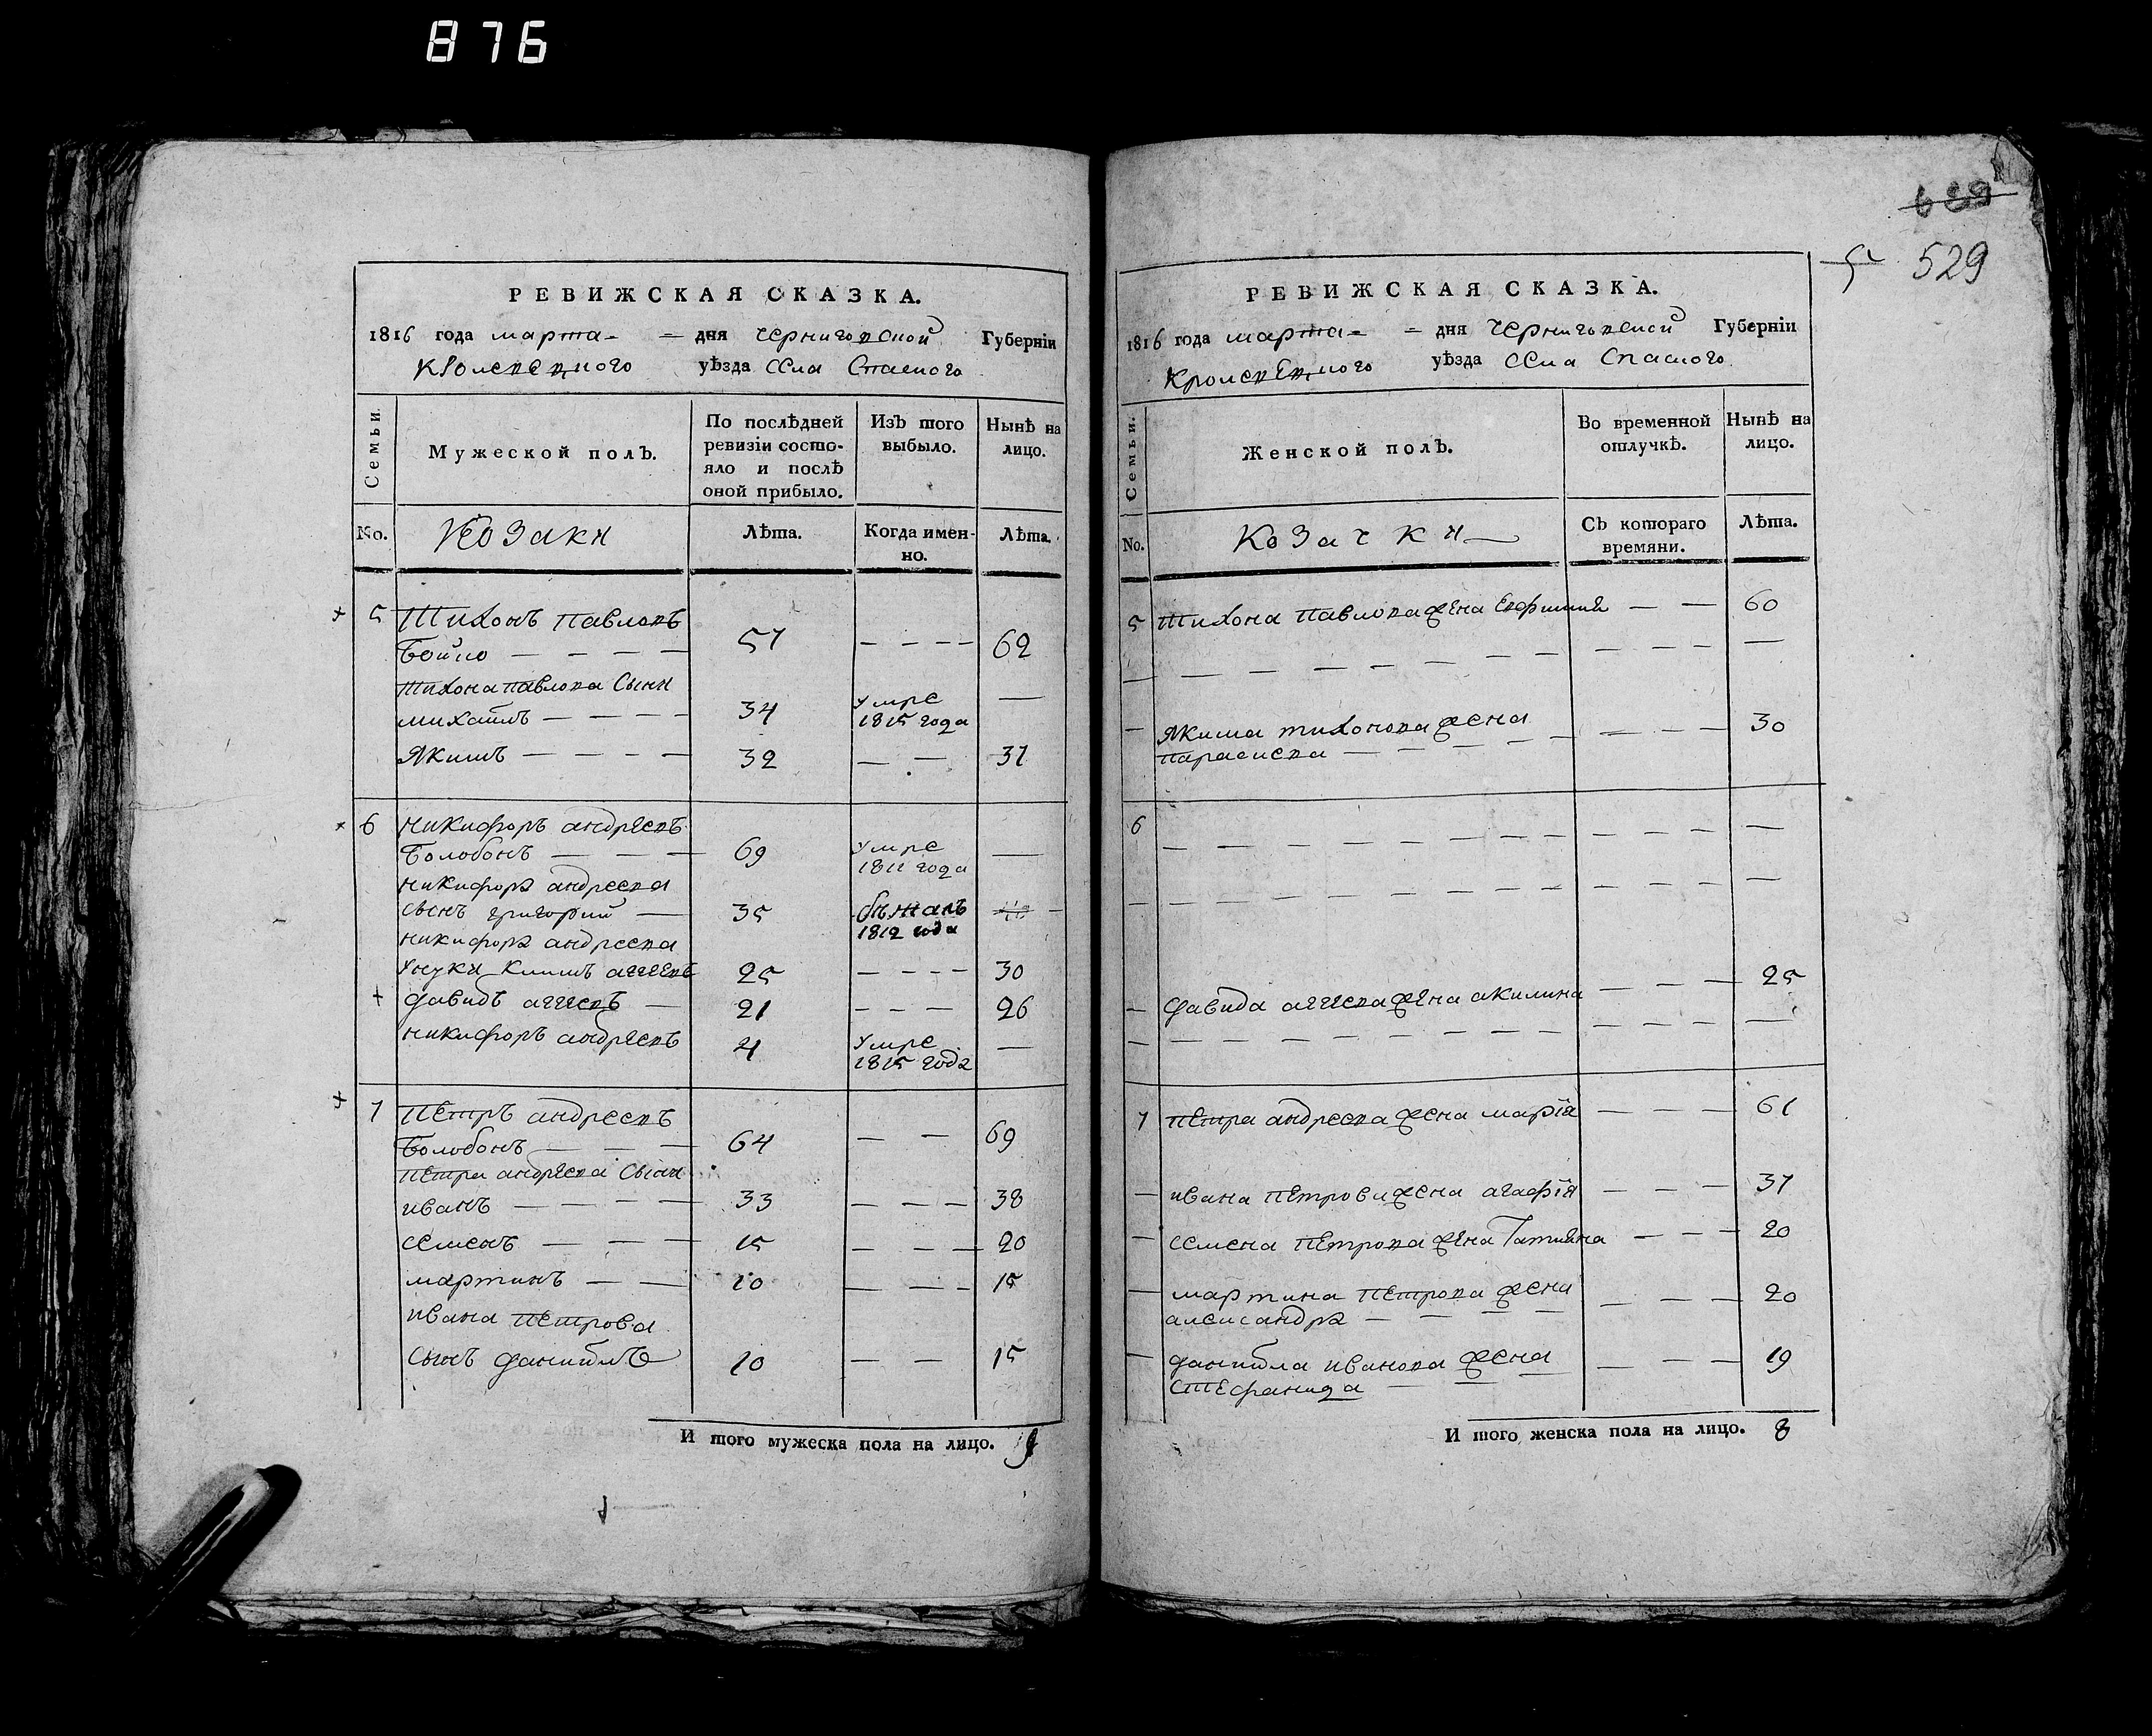 876
689
5 529
РЕВИЖСКАЯ СКАЗКА.
1816 года марта = дня Черниговской Губерніи
Кролевецкого уѣзда Села Спаского
Семьи. Мужеской полъ. По послѣдней ревизіи состояло и послѣ оной прибыло. Изъ того выбыло. Нынѣ на лицо.
No. Козаки Лѣта. Когда именно. Лѣта.
5 Тихонъ Павловъ
Бойко — — — — 57 — — — — 62
Тихона Павлова Сыни
михайлъ — — — — 34 умре 1815 года —
Якимъ — — — — 32 — — 37
6 никифоръ андреевъ
Болобонъ — — — 69 умре 1811 года —
никифора андреева
сынъ григорий — 35 бѣжалъ 1812 года —
никифора андреева
унуки Климъ аггеевъ 25 — — — — 30
давидъ аггеевъ — 21 — — — 26
никифоръ андреевъ 4 умре 1815 года —
7 Петръ андреевъ
Болобонъ — — — 64 — — 69
Петра андреева Сыни
иванъ — — — — 33 — — — 38
семенъ — — — 15 — — — 20
мартинъ — — 10 — — — 15
ивана Петрова
сынъ данийлъ 10 — — 15
И того мужеска пола на лицо. 9
РЕВИЖСКАЯ СКАЗКА.
1816 года марта = дня Черниговской Губерніи
Кролевецкого уѣзда Села Спаского
Семьи. Женской полъ. Во временной отлучкѣ. Нынѣ на лицо.
No. Козачки Съ котораго времяни. Лѣта.
5 Тихона Павлова жена Евфимия — — 60
— — — — — — — — — — — — —
— Якима тихонова жена — — — 30
Параскева — — — — —
6 — — — — — — — — — — — —
— — — — — — — — — — — —
— давида аггеева жена акилина — — — 25
— — — — — — — — — — — —
7 Петра андреева жена марія — — — 61
— ивана Петрова жена агафія — — — 37
— семена Петрова жена Татияна — — — 20
— мартина Петрова жена — — — 20
александра — — — —
— данийла иванова жена — — — 19
Стефанида — — —
И того женска пола на лицо. 8